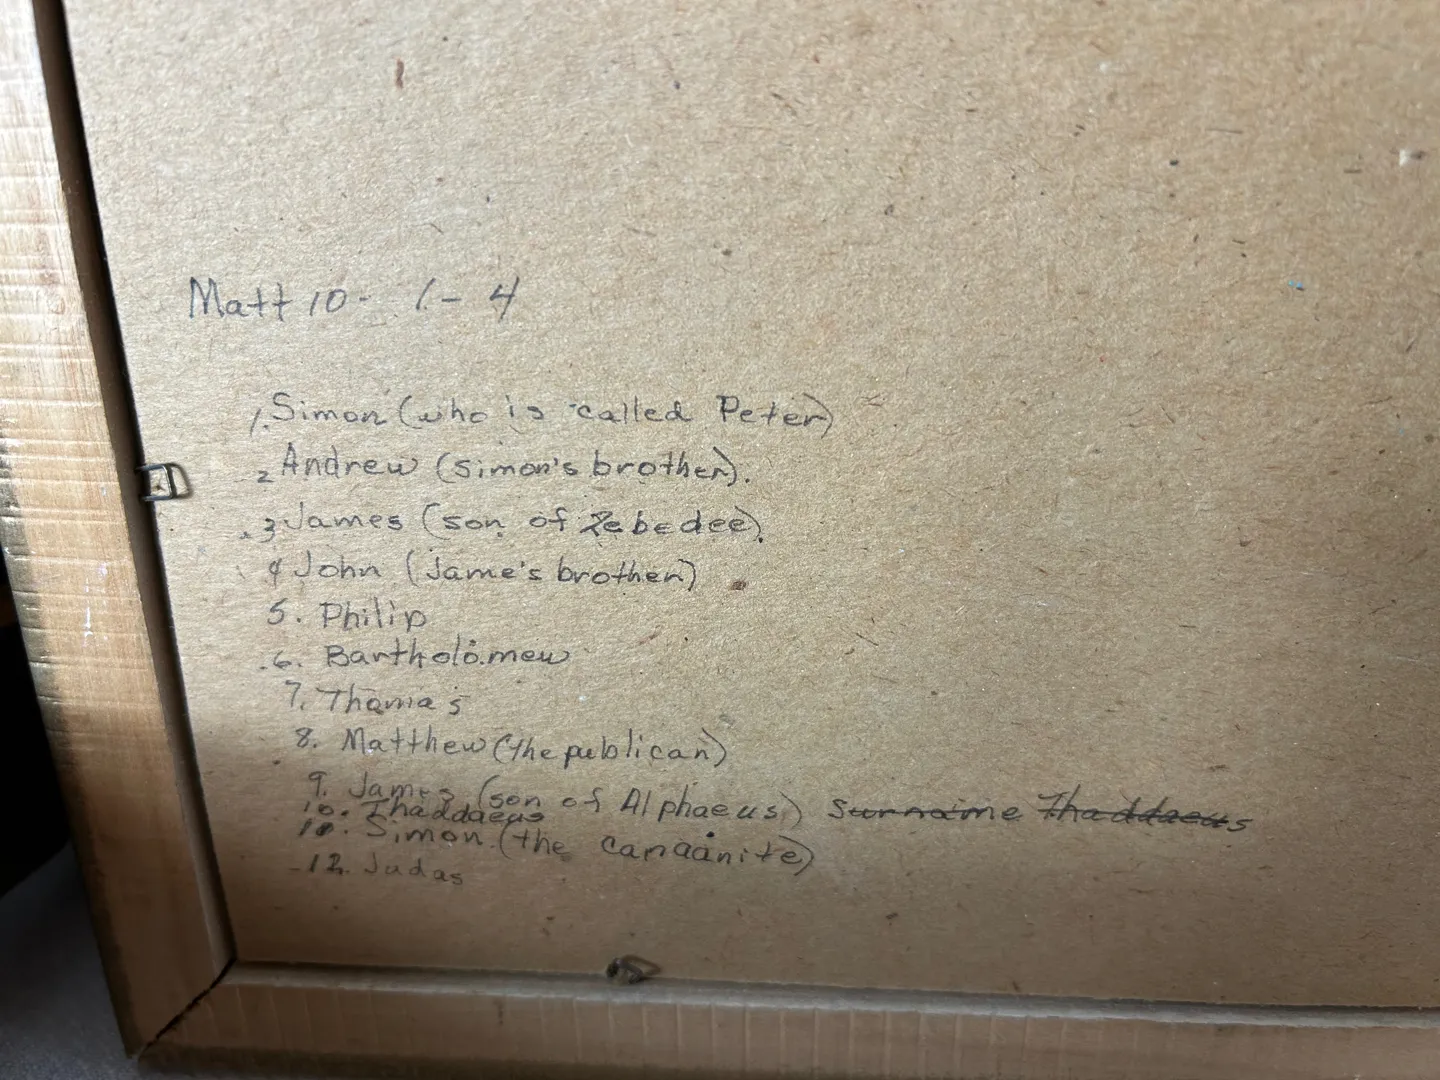 Matt 10 - 1 - 4
1. Simon (who is called Peter)
2 Andrew (Simon's brother).
3 James (son of Zebedee).
4 John (Jame's brother)
5. Philip
6. Bartholomew
7. Thomas
8. Matthew (the publican)
9. James (son of Alphaeus) Surname Thaddaeus
10. Thaddaeus
Simon (the canaanite)
12. Judas